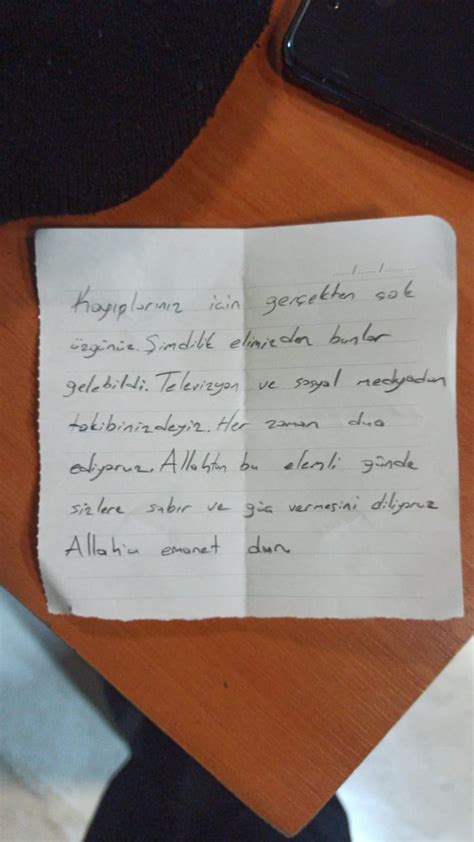 .../...../........
Kayıplarınız için gerçekten çok
üzgünüz. Şimdilik elimizden bunlar
gelebildi. Televizyon ve sosyal medyadan
takibinizdeyiz. Her zaman dua
ediyoruz. Allahtan bu elemli günde
sizlere sabır ve güç vermesini diliyoruz
Allah'a emanet olun.